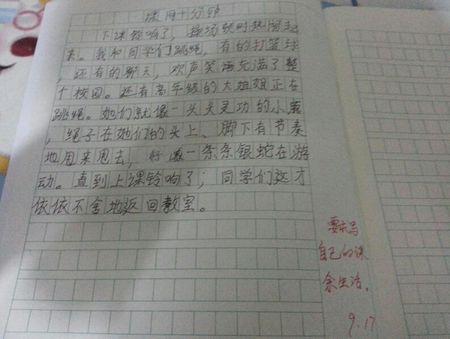 课间十分钟
下课铃响了，操场顿时热闹起
来。我和同学们跳绳，有的打篮球
，还有的聊天，欢声笑语充满了整
个校园。还有高年级的大姐姐正在
跳绳。她们就像一头头灵巧的小鹿
，绳子在她们的头上、脚下有节奏
地甩来甩去，好像一条条银蛇在游
动。直到上课铃响了；同学们这才
依依不舍地返回教室。
要求写
自己的课
余生活。
9.17